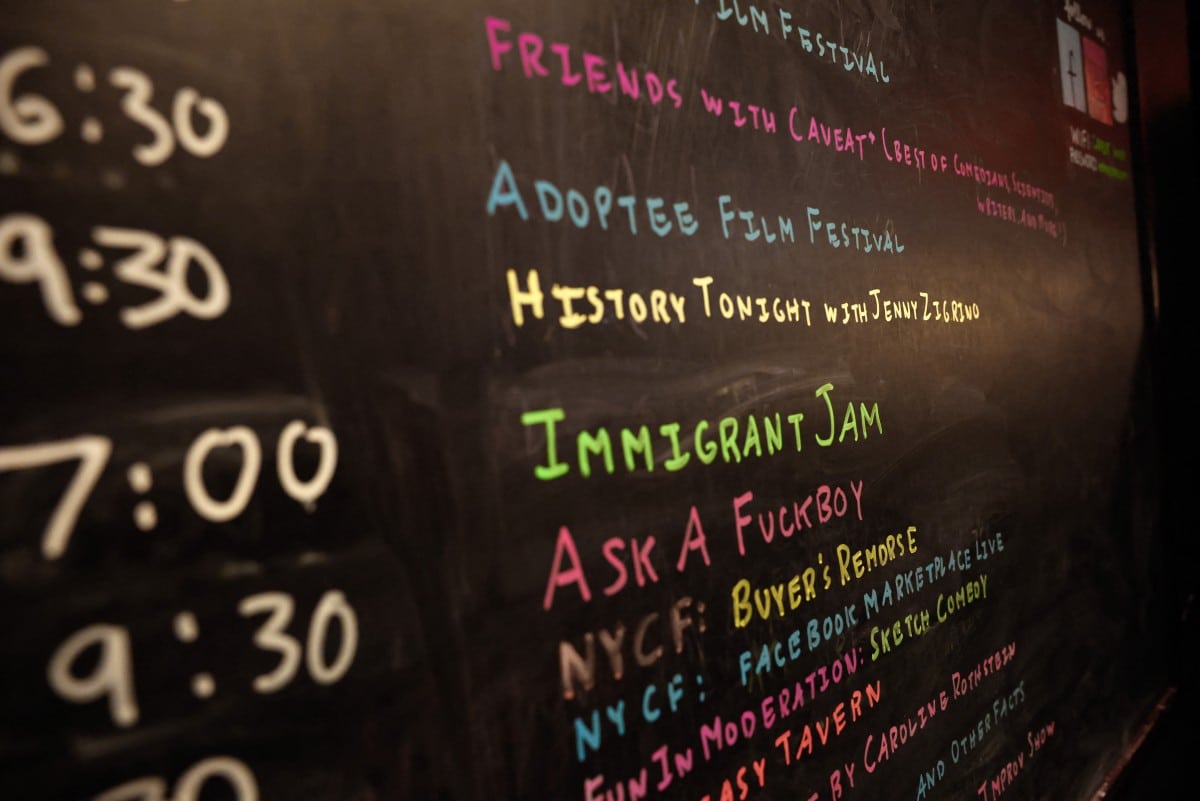 FILM FESTIVAL
6:30 FRIENDS WITH CAVEAT* (BEST OF COMEDIANS, SCIENTISTS,
WRITERS AND MORE!)
ADOPTEE FILM FESTIVAL
9:30 HISTORY TONIGHT WITH JENNY ZIGRINO
7:00 IMMIGRANT JAM
ASK A FUCKBOY
9:30 NYCF: BUYER'S REMORSE
NYCF: FACEBOOK MARKETPLACE LIVE
FUN IN MODERATION: SKETCH COMEDY
EASY TAVERN
BY CAROLINE ROTHSTEIN
AND OTHER FACTS
IMPROV SHOW